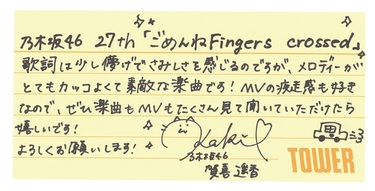 乃木坂46 27th「ごめんねFingers crossed」
歌詞は少し儚げでさみしさを感じるのですが、メロディーが
とてもカッコよくて素敵な楽曲です！MVの疾走感も好き
なので、ぜひ楽曲もMVもたくさん見て聞いていただけたら
嬉しいです！
よろしくお願いします！
Kaki
乃木坂46
賀喜遥香
TOWER